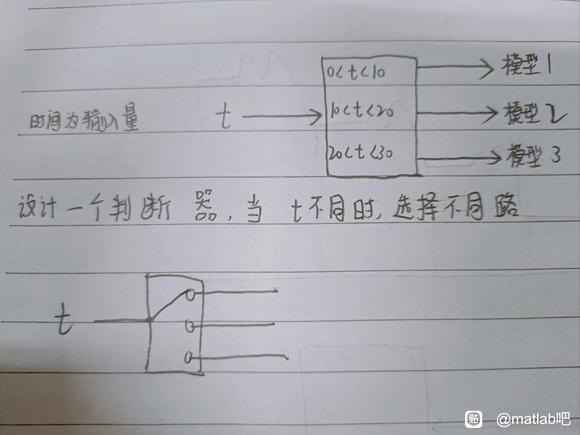 0<t<10
模型1
时间为输入量
t
10<t<20
模型2
20<t<30
模型3
设计一个判断器,当 t不同时,选择不同路
t
贴 @matlab吧